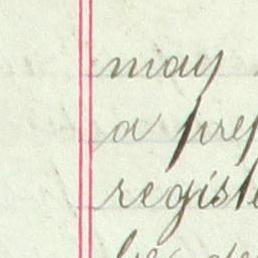 may
a prep
regist
be de